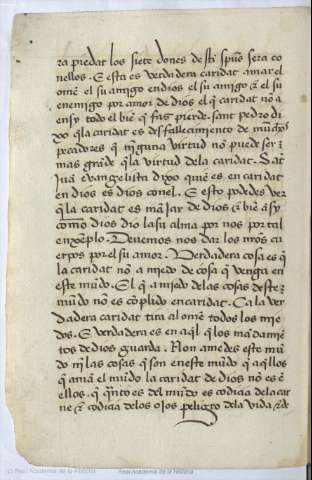 ra piedat los siete dones de sti spūs sera co
nellos. E esta es verdadera caridat amar el
ome el su amigo en dios el su amigo & el su
enemigo por amor de dios el q̄ caridat nō á
ensy todo el biē q̄ fas pierde. sant pedro di
xo q̄ la caridat es desfallecimiento de muchos
pecadores & nīguna virtud nō puede ser
mas grāde q̄ la virtud dela caridat. Sāt
juā evangelista dixo quē es en caridat
en dios es & dios conel. E esto podedes ver
q̄ la caridat es manjar de dios & biē asy
como dios dio la su alma por nos por tal
enxēplo. Devemos nos dar los nros cu
erpos por el su amor. Verdadera cosa es q̄
la caridat nō a miedo de cosa q̄ venga en
este mūdo. El q̄ a miedo delas cosas deste
mūdo nō es cōplido en caridat. Ca la ver
dadera caridat tira al ome todos los mie
dos. E verdadera es en aq̄l q̄ los māndamiē
tos de dios guarda. Non amedes este mū
do nī las cosas q̄ son eneste mūdo q̄ aq̄llos
q̄ amā el mūdo la caridat de dios nō es ē
ellos. q̄ q̄nto es del mūdo es codiçia dela car
ne & codiçia delos ojos peligro dela vida & de
(c) Real Academia de la Historia
Real Academia de la Historia